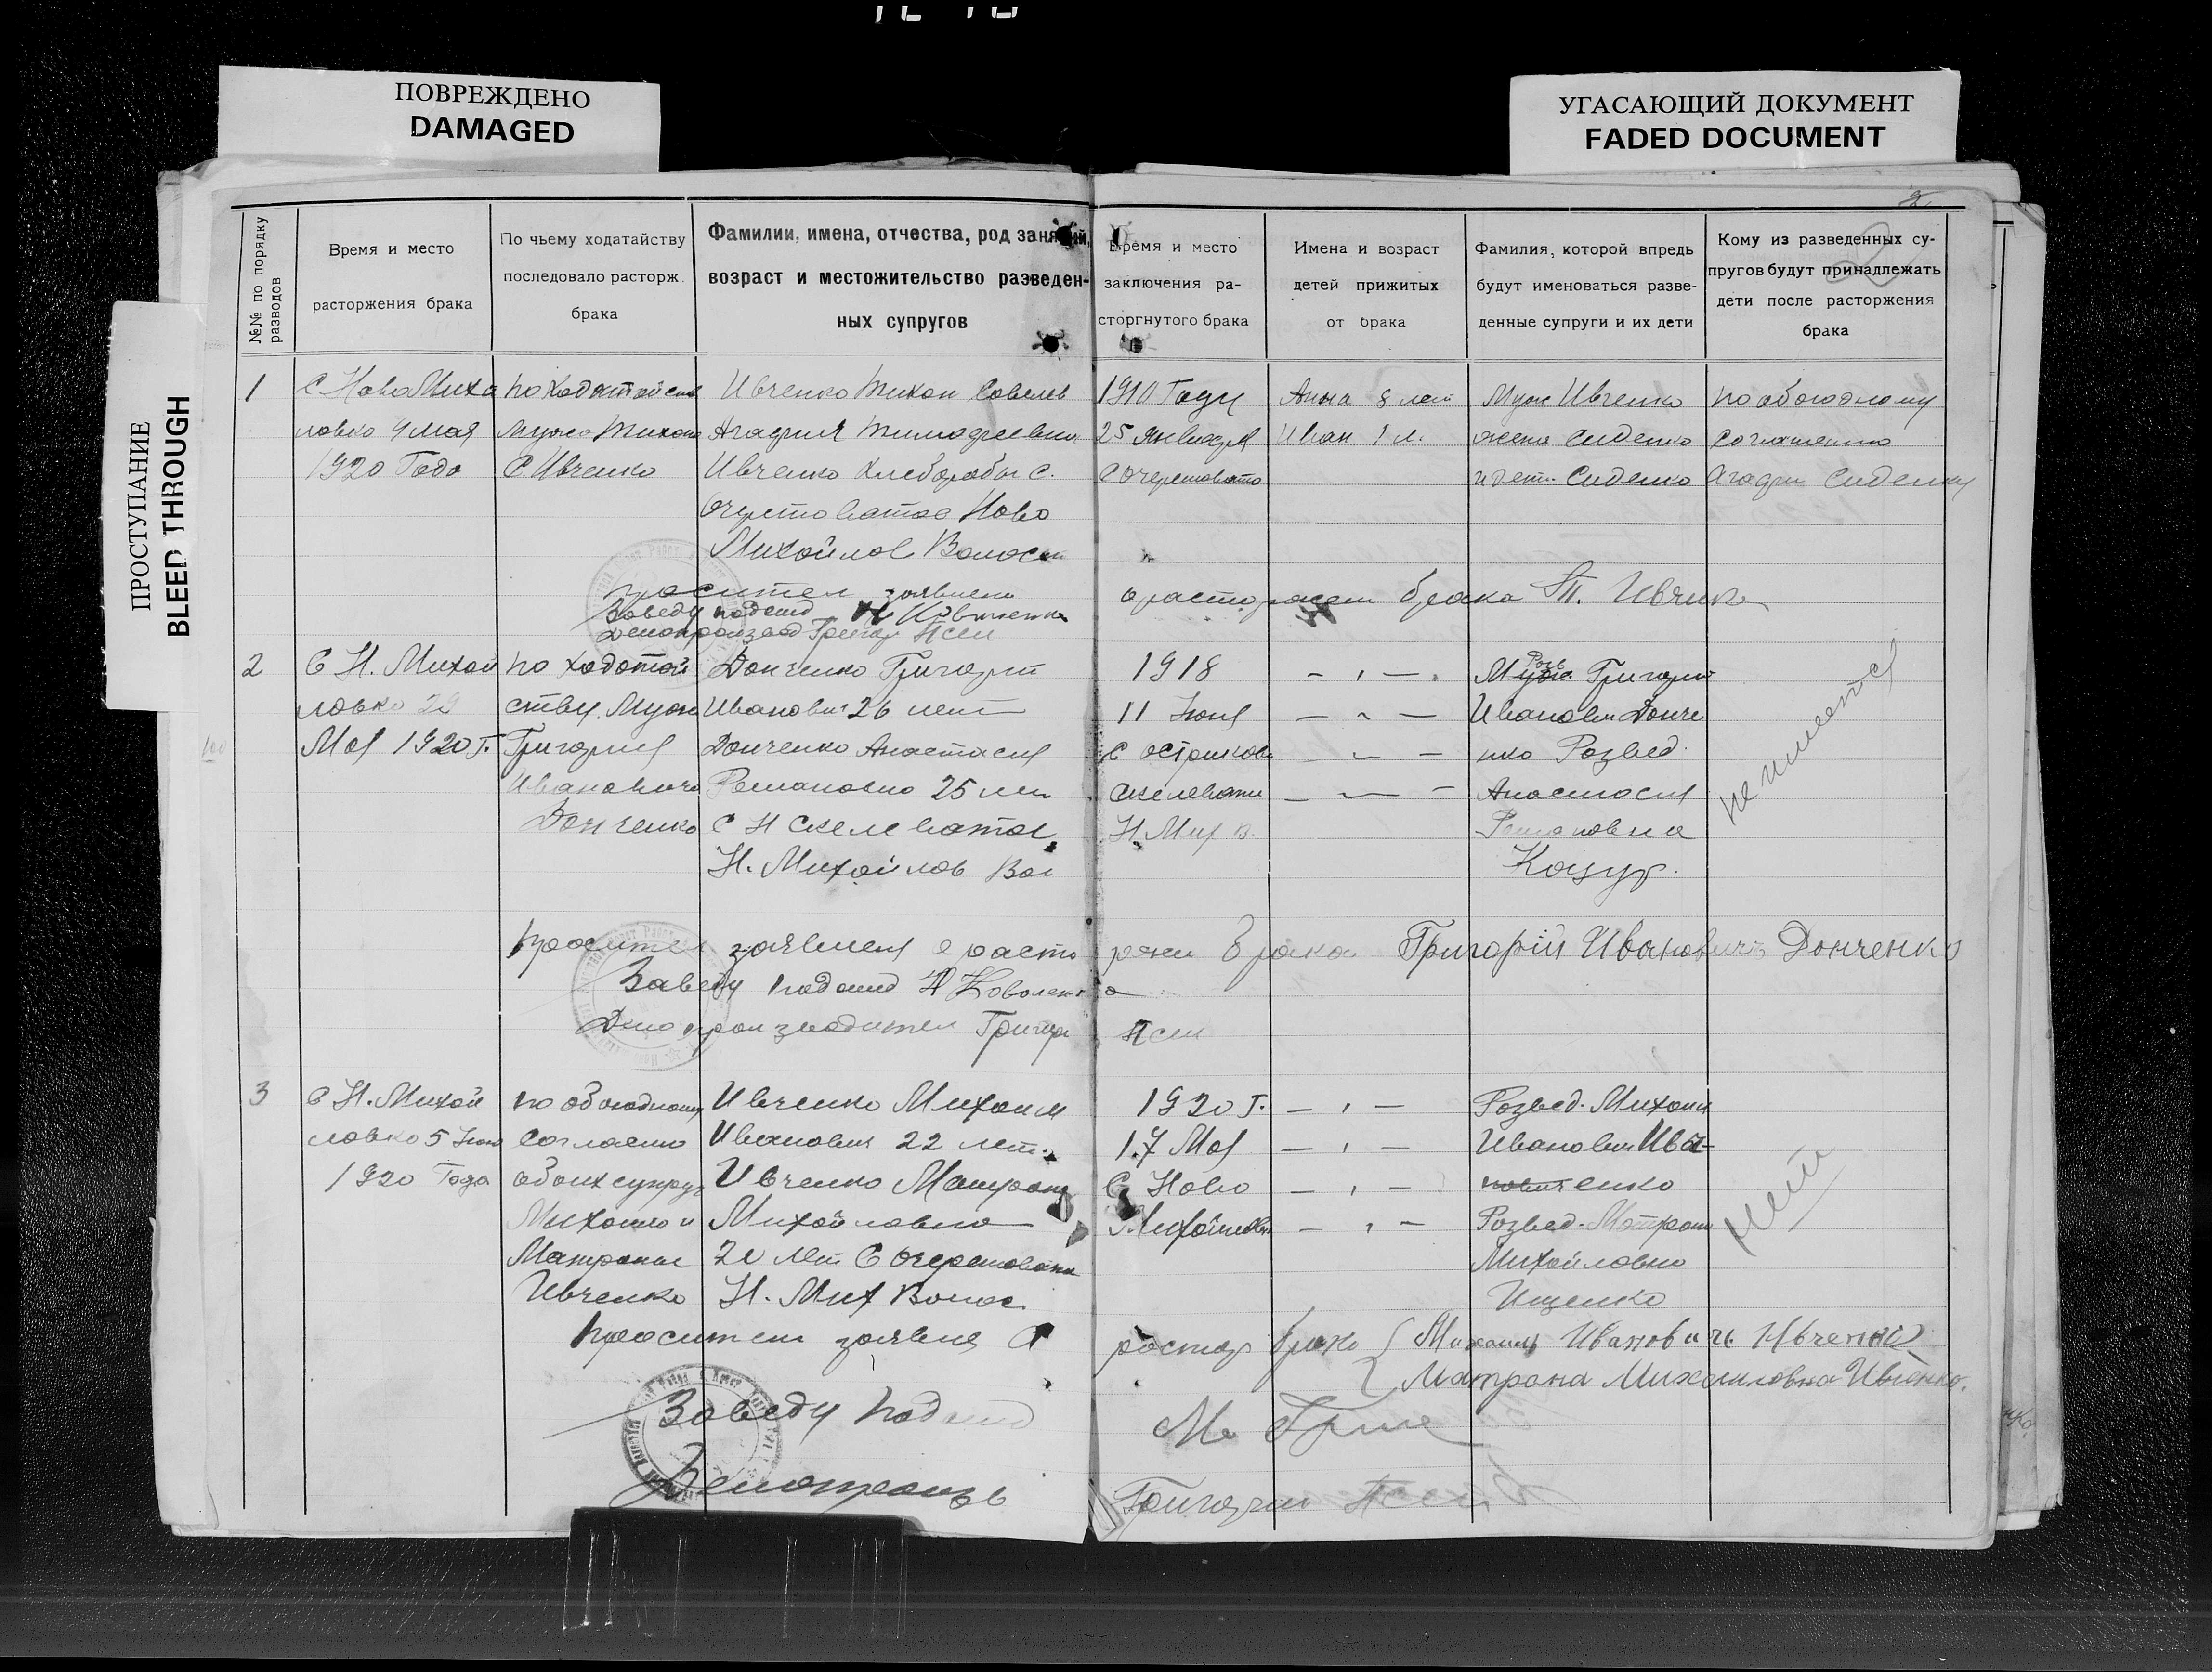 ПОВРЕЖДЕНО
DAMAGED
УГАСАЮЩИЙ ДОКУМЕНТ
FADED DOCUMENT
ПРОСТУПАНИЕ
BLEED THROUGH
№№ по порядку разводов
Время и место
расторжения брака
По чьему ходатайству
последовало расторж.
брака
Фамилии, имена, отчества, род занятий,
возраст и местожительство разведен-
ных супругов
Время и место
заключения ра-
сторгнутого брака
Имена и возраст
детей прижитых
от брака
Фамилия, которой впредь
будут именоваться разве-
денные супруги и их дети
Кому из разведенных су-
пругов будут принадлежать
дети после расторжения
брака
2
1
С НовоМиха
ловко 9 мая
1920 Года
по ходатайств
мужа Тихона
С. Ивченко
Ивченко Тихон Савелев
Агафия Тимофеевна
Ивченко Хлеборобы с.
Михойлов Волост
1910 Году
25 Января
С очеретовато
Анна 8 лет
Иван 1 л.
Муж Ивченко
жена Сиденко
и дети Сиденко
по обоюдному
соглашению
Агафи Сиденку
проситель заявлени
Заведу подотд
Григор
брака Т. Ивченко
2
С Н. Михой
ловко 29
Мая 1920 г.
по ходотой
ству Мужа
Григория
Ивановича
Донченко
Донченко Григорий
Иванович 26 лет
Донченко Анастасия
Романовно 25 лет
С Н Скелеватое
Н. Михойлов Вол
1918
11 Июня
Скелевати
Н. Мих в.
Розв
Григорий
Иванович Донче
нко Розвед.
Анастасия
Романовна
Коцур.
не имеется
проситель заявлени о расто
ржен брака Григорій Ивановичъ Донченко
Заведу подотд Н Коваленко
Делопроизводител Григор
3
С Н. Михой
ловко 5 Июня
1920 Года
по обоюдному
согласию
обоих супруг
Михоило и
Матроны
Ивченко
Ивченко Михоил
Иванович 22 лет.
Ивченко Матрона
Михойловно
20 лет С Очеретовати
Н. Мих Волос
1920 г.
17 Мая
С Ново
Михойловк
Розвед. Михоил
Иванович Ивч-
енко
Розвед. Мотрона
Михойловно
Ищенко
нет
проситель заявле о
растор брака { Михаилъ Ивановичъ Ивченко
Матрона Михаиловна Ивченко.
Заведу подотд
Делопроизв
Григорий